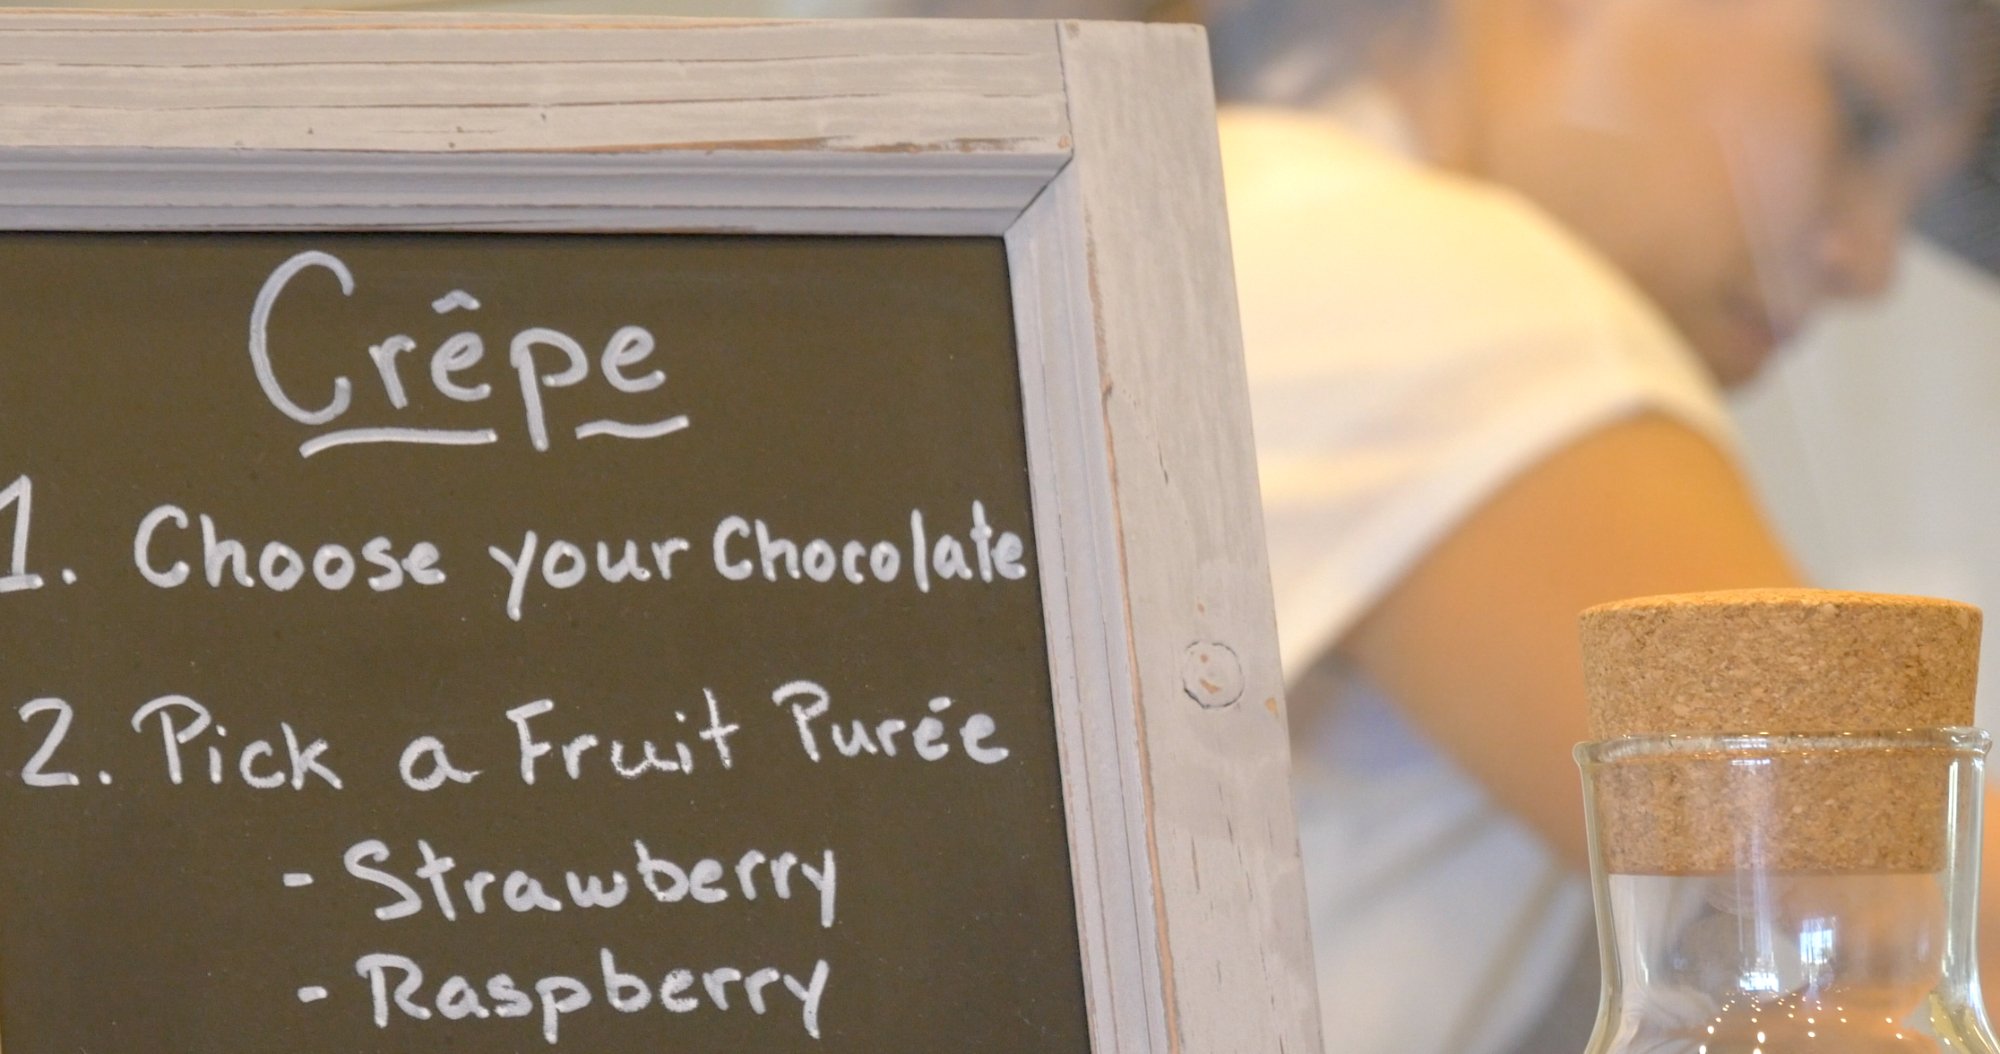 Crêpe
1. Choose your Chocolate
2. Pick a Fruit Purée
- Strawberry
- Raspberry